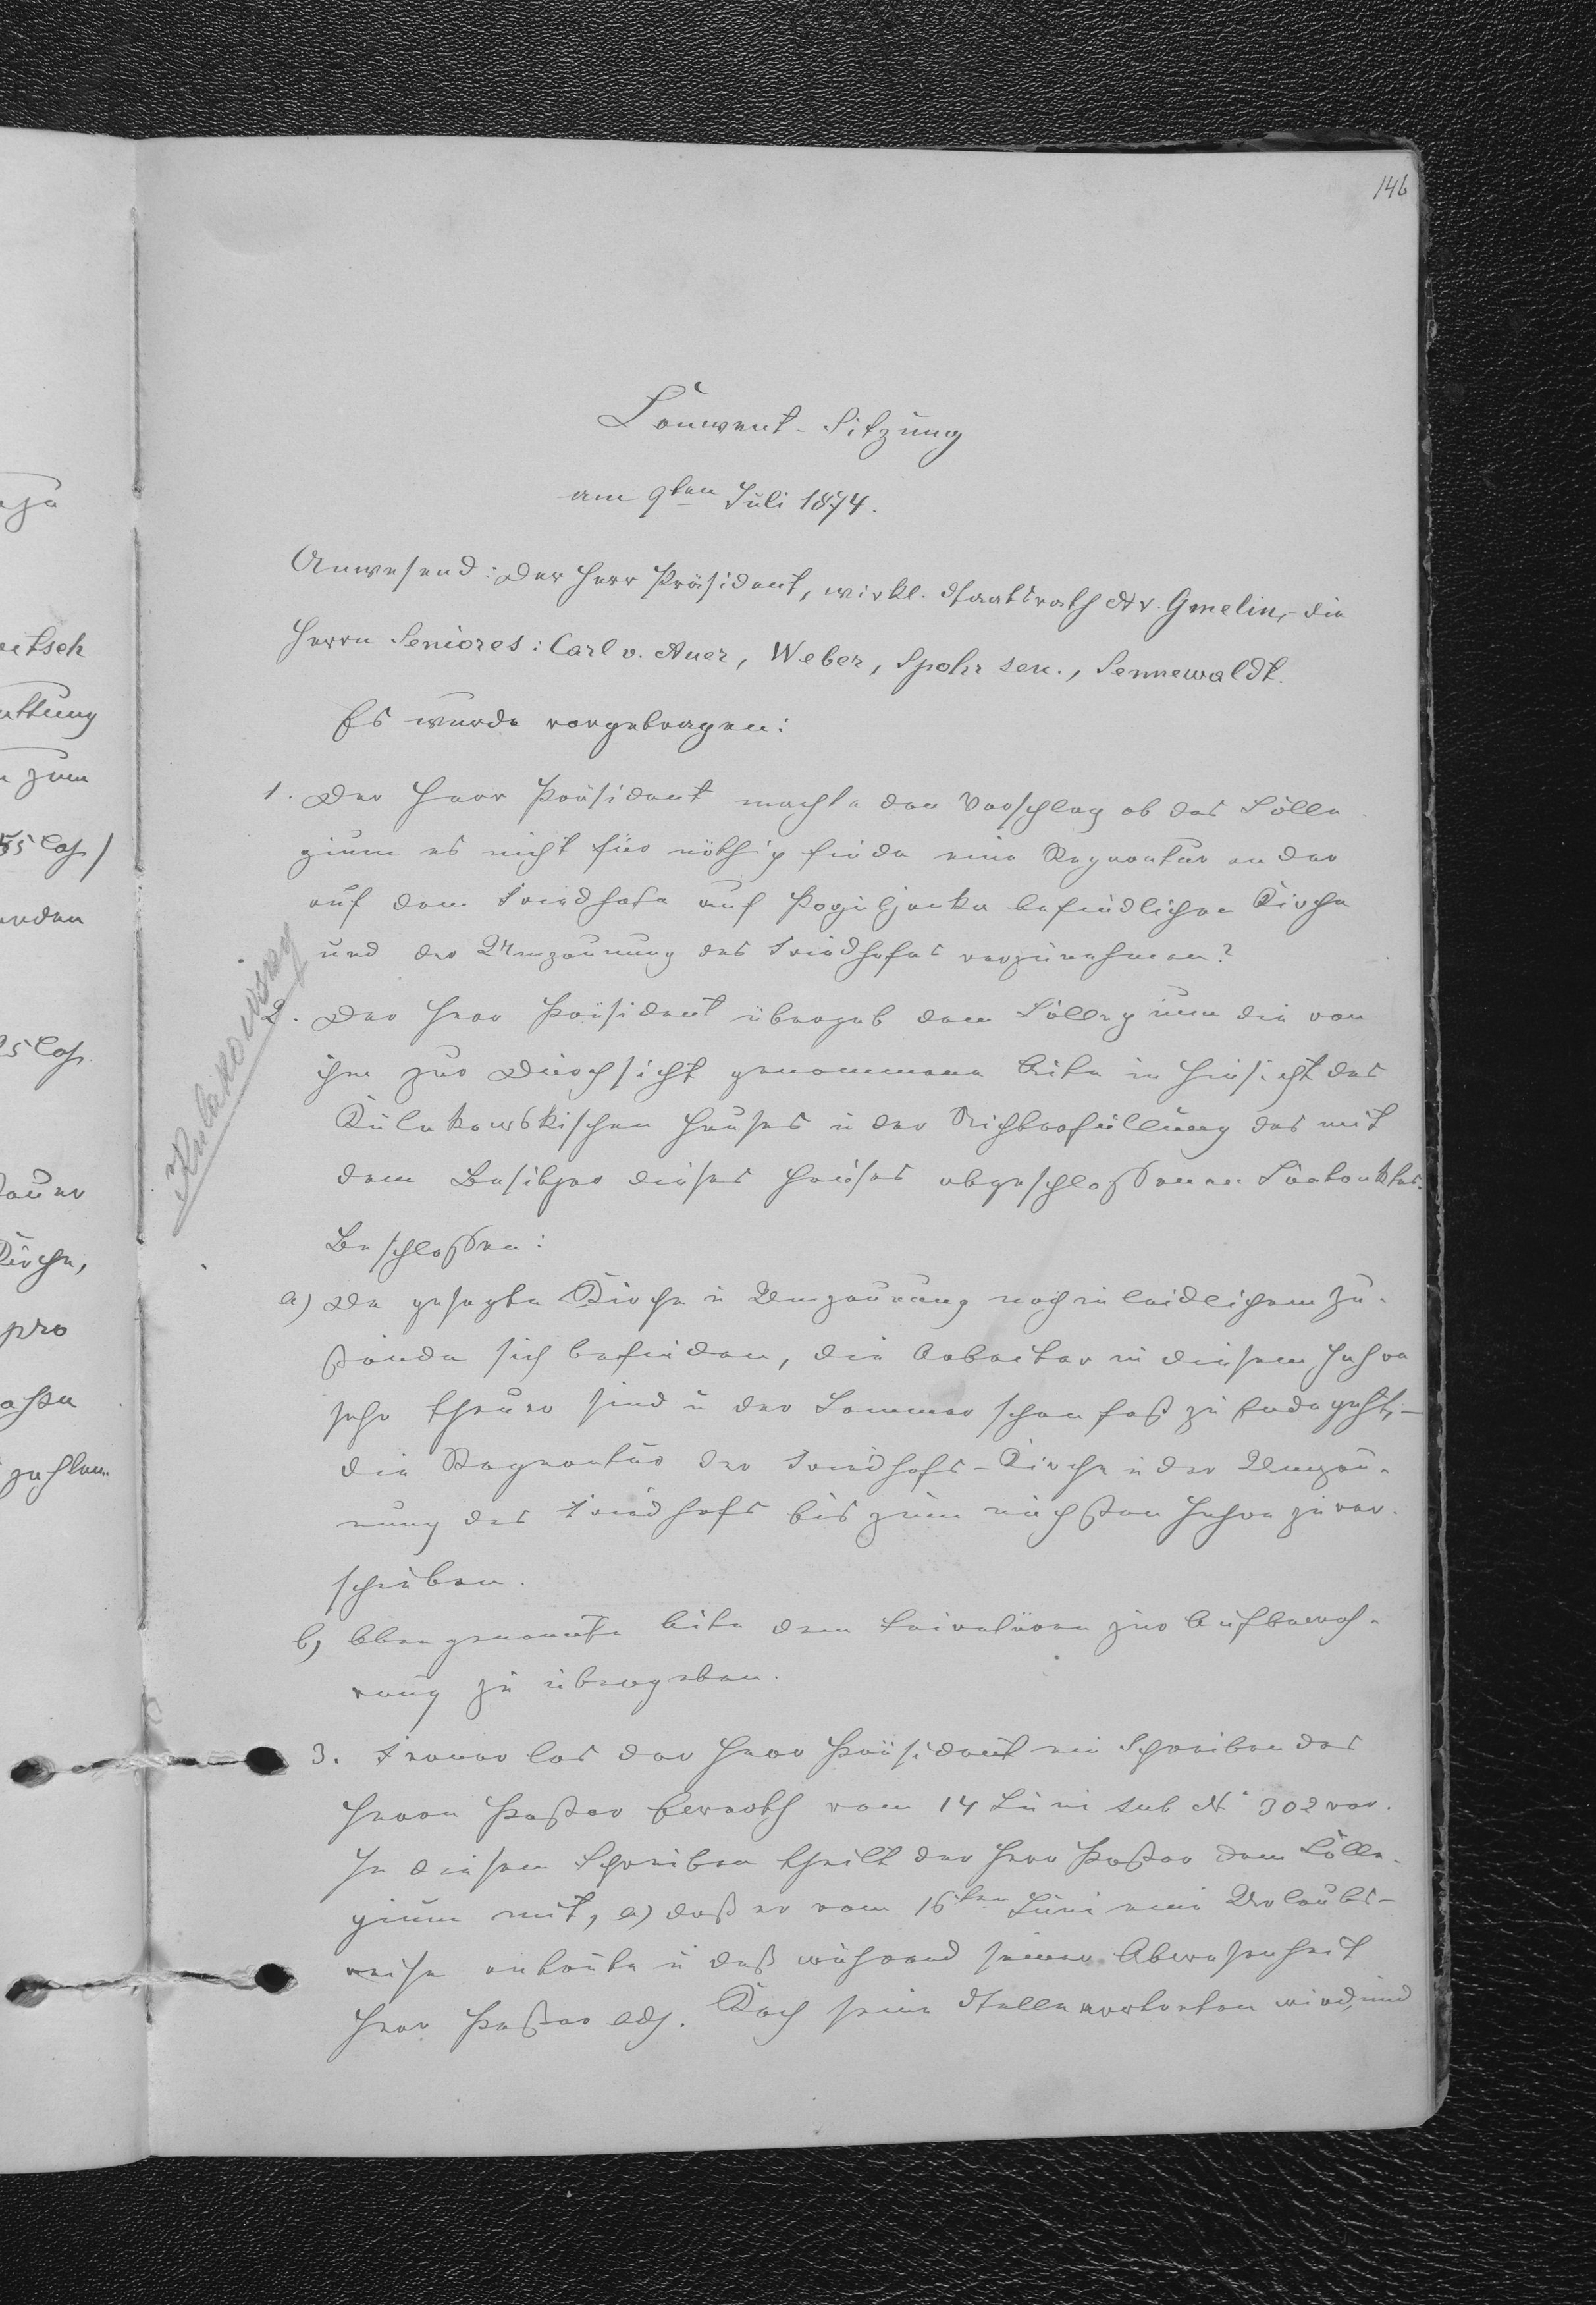 146
Convent-Sitzung
am 9ten Juli 1874.
Anwesend: Der Herr Präsident, wirkl. Staatsrath N v. Gmelin, die
Herrn Seniores: Carl v. Auer, Weber, Spohr sen., Sennewaldt.
Es wurde vorgetragen:
1. Der Herr Präsident machte den Vorschlag ob das Colle-
gium es nicht für nöthig finde eine Reperatur an der
auf dem Friedhofe auf Poguljanka befindlichen Kirche
und der Umzäunung des Friedhofes vorzunehmen?
Kulakowsky
2. Der Herr Präsident übergab dem Collegium die von
ihm zur Durchsicht genommene Akte in Hinsicht des
Kulakowskischen Hauses u der Nichterfüllung des mit
dem Besitzer dieses Hauses abgeschloßenen Contraktes.
Beschloßen:
a) Da gesagte Kirche u Umzäunung noch in leidlichem Zu-
stande sich befinden, die Arbeiter in diesem Jahre
sehr theuer sind u der Sommer schon fast zu Ende geht,-
die Reperatur der Friedhofs-Kirche u der Umzäu-
nung des Friedhofs bis zum nächsten Jahre zu ver-
schieben.
b) Oben genannte Akte dem zur Aufbewah-
rung zu übergeben.
3. Ferner las der Herr Präsident ein Schreiben des
Herrn Pastor Everth vom 14 Juni sub N° 302 vor.
In diesem Schreiben theilt der Herr Pastor dem Colle-
gium mit, a) daß er vom 16ten Juni eine Urlaubs-
reise antrete u daß während seiner Abwesenheit
Herr Pastor adj. Koch seine Stelle vertreten wird, und
etsch
ttung
zum
55 Cop/
erden
25 Cop.
Kirche,
pro
zahlen